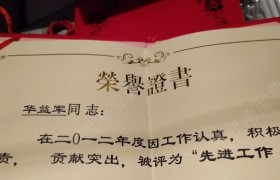 榮譽證書
华益军同志：
在二〇一二年度因工作认真，积极
责，贡献突出，被评为“先进工作